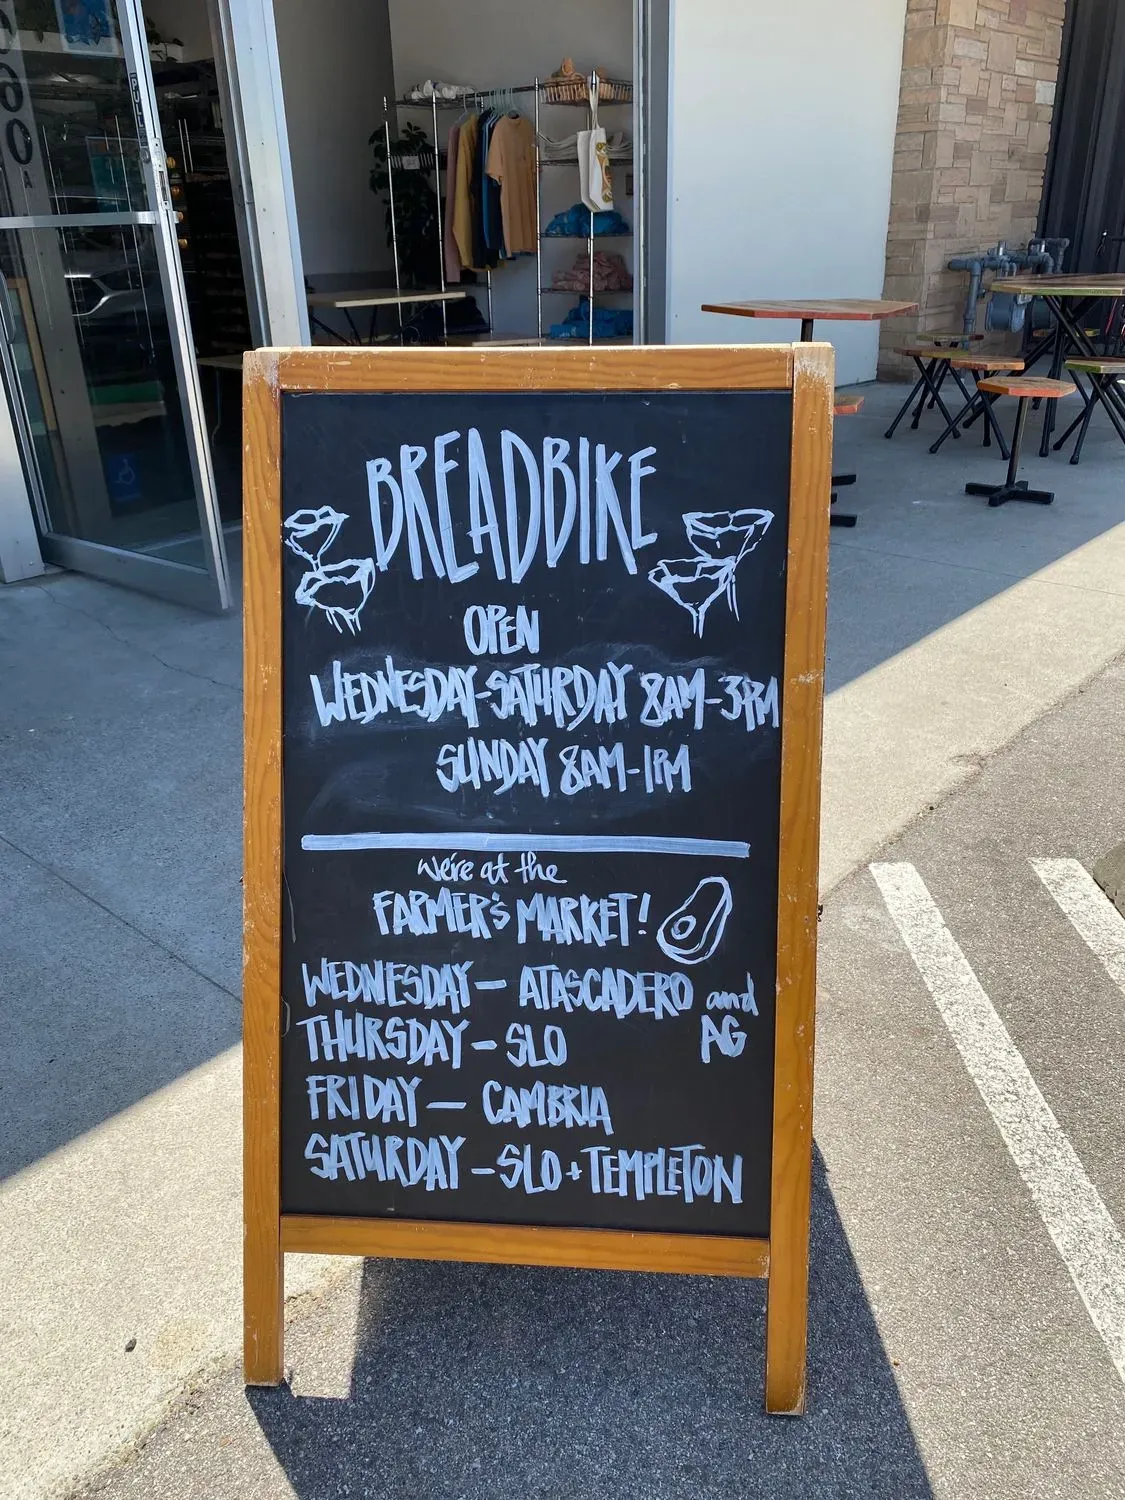 BREADBIKE
OPEN
WEDNESDAY-SATURDAY 8AM-3PM
SUNDAY 8AM-1PM
we're at the
FARMER'S MARKET!
WEDNESDAY - ATASCADERO and
AG
THURSDAY - SLO
FRIDAY - CAMBRIA
SATURDAY - SLO + TEMPLETON